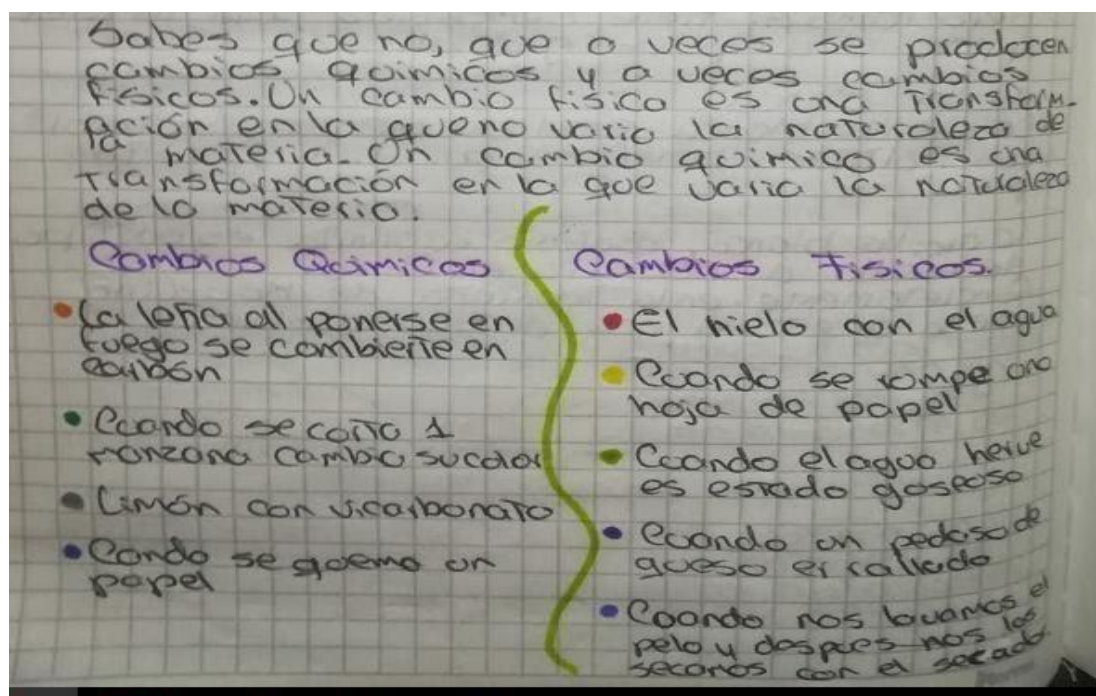 Sabes que no, que a veces se producen
cambios químicos y a veces cambios
físicos. Un cambio físico es una Transform-
ación en la que no varia la naturaleza de
la materia. Un cambio químico es una
Transformación en la que varia la naturaleza
de la materia.
Cambios Químicos
• La leña al ponerse en
fuego se combierte en
carbón
• Cuando se corta 1
manzana cambia su color
• Limón con vicarbonato
• Cando se quema un
papel
Cambios Físicos.
• El hielo con el agua
• Cuando se rompe una
hoja de papel
• Cuando el agua herve
es estado gaseoso
• Cuando un pedaso de
queso es rallado
• Cuando nos lavamos el
pelo y despues nos los
secamos con el secado